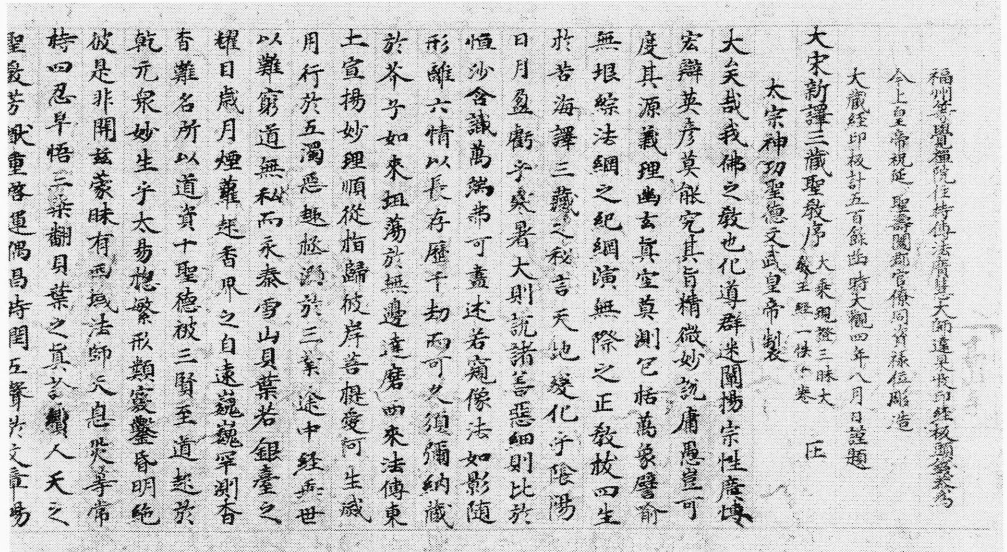 福州等覺禪院住持傳法廣慧大師達杲收印經板頭錢恭為
今上皇帝祝延聖壽闔郡官僚同資祿位彫造
大藏經印板計五百餘函時大觀四年八月日謹題
大宋新譯三藏聖教序 大乘現證三昧大教王經一帙卷
大宗神功聖德文武皇帝製
大矣哉我佛之教也化道群迷闡揚宗性廣博
宏辯英彥莫能究其旨精微妙說庸愚豈可
度其源義理幽玄真空莫測包括萬象譬喻
無垠綜法網之紀綱演無際之正教拔四生
於苦海譯三藏之秘言天地變化乎陰陽
日月盈虧乎寒暑大則說諸善惡細則比於
恒沙含識萬端弗可盡述若窺像法如影隨
形離六情以長存歷千劫而可久須彌納藏
於芥子如來坦蕩於無邊達磨西來法傳東
土宣揚妙理順從指歸彼岸菩提愛河生滅
用行於五濁惡趣拯溺於三業途中經垂世
以難窮道無私而永泰雪山貝葉若銀臺之
耀日歲月煙蘿起香界之自遠巍巍罕測杳
杳難名所以道資十聖德被三賢至道起於
乾元眾妙生乎太易揔繁形類竅鑿昏明絕
彼是非開茲蒙昧有西域法師天息災等常
持四忍早悟三乘翻貝葉之真 人天之
聖教芳猷重啓運偶昌時閏五聲於文章暢